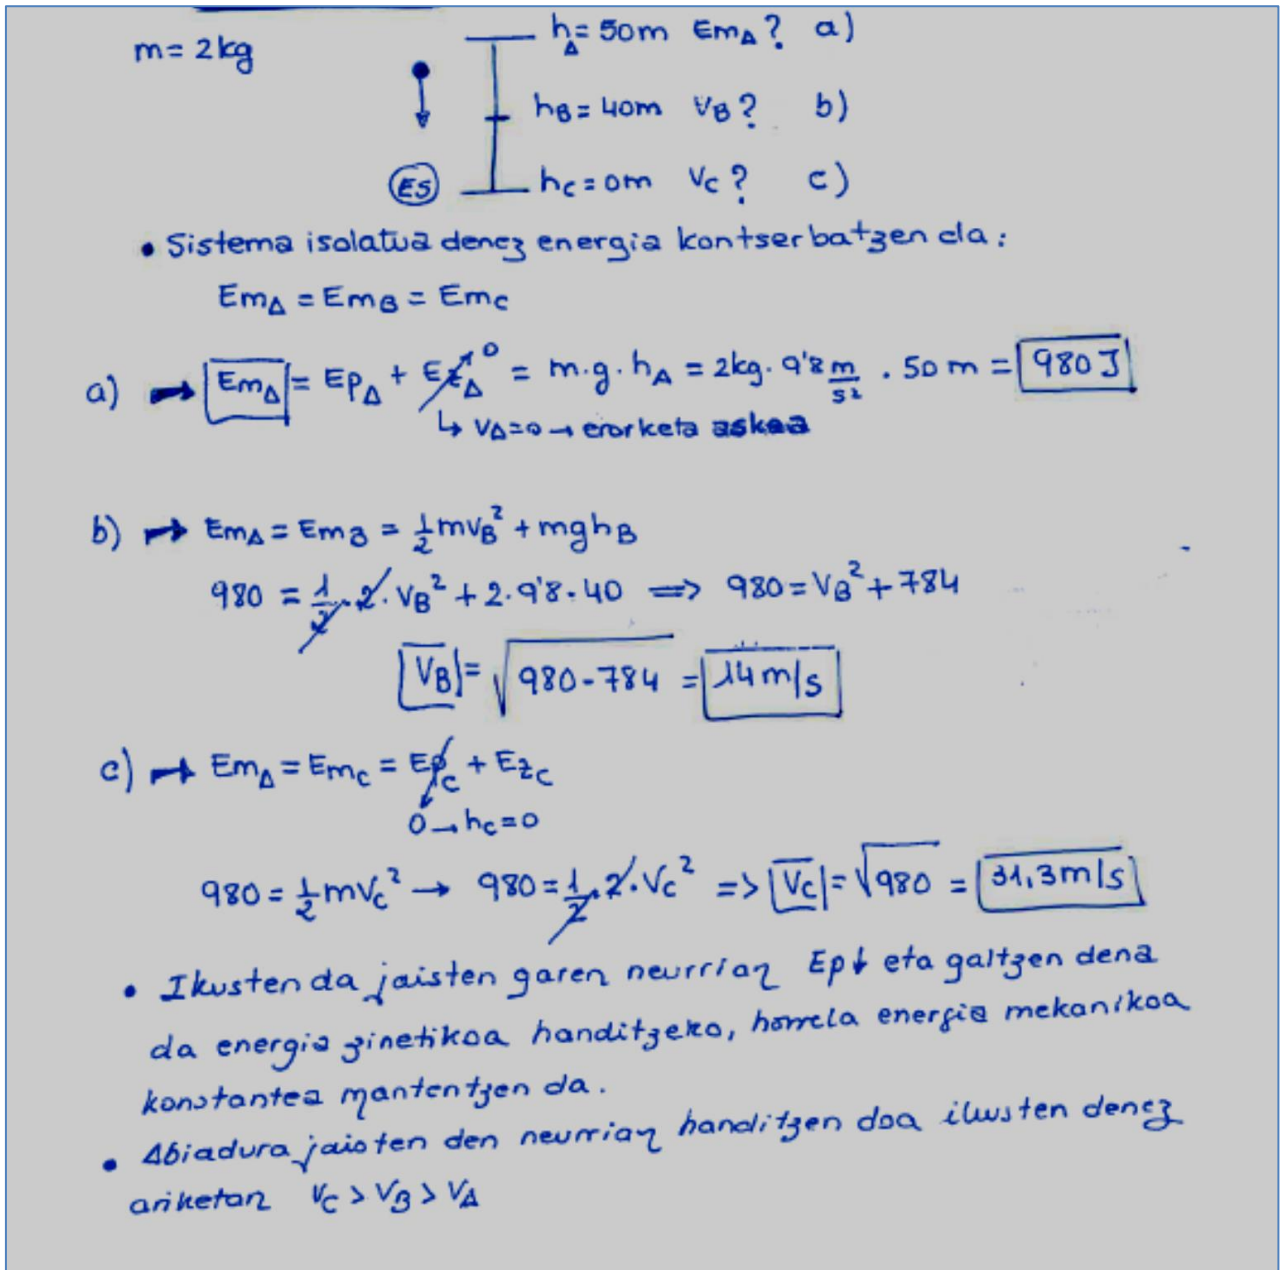 m= 2kg
h_A= 50m Em_A? a)
h_B= 40m V_B? b)
ES
h_C= 0m V_C? c)
• Sistema isolatua denez energia kontserbatzen da:
Em_A = Em_B = Em_C
a) → Em_A = Ep_A + Ez_A 0 = m.g.h_A = 2kg. 9'8 m/s² . 50 m = 980 J
↳ V_A=0 → erorketa askea
b) → Em_A = Em_B = 1/2 mv_B² + mgh_B
980 = 1/2 . 2 . V_B² + 2.9'8.40 => 980 = V_B² + 784
V_B = √980-784 = 14 m/s
c) → Em_A = Em_C = Ep_C + Ez_C
0 → h_C=0
980 = 1/2 mV_C² → 980 = 1/2 . 2 . V_C² => V_C = √980 = 31,3 m/s
• Ikusten da jaisten garen neurrian Ep↓ eta galtzen dena
da energia zinetikoa handitzeko, horrela energia mekanikoa
konstantea mantentzen da.
• Abiadura jaisten den neurrian handitzen doa ikusten denez
ariketan V_C > V_B > V_A